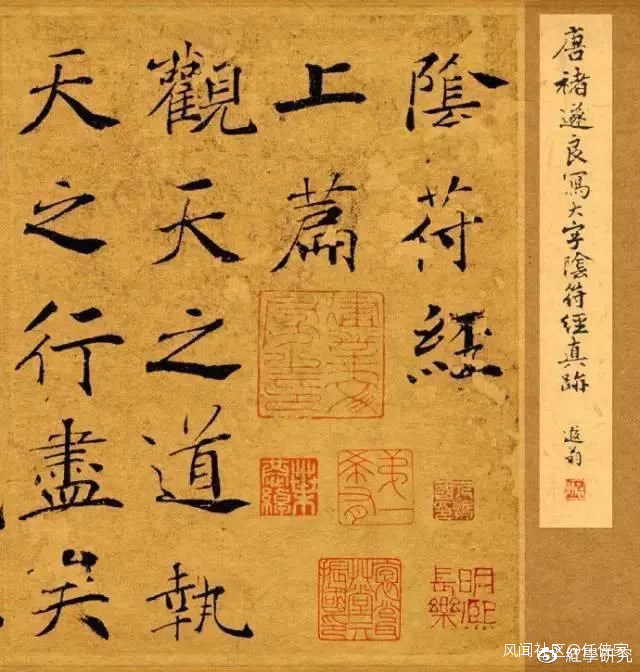 唐褚遂良寫大字陰符經真跡
遐翁
陰符經
上篇
觀天之道執
天之行盡矣
明熙
長樂
风闻社区@任佳宝
紅學研究